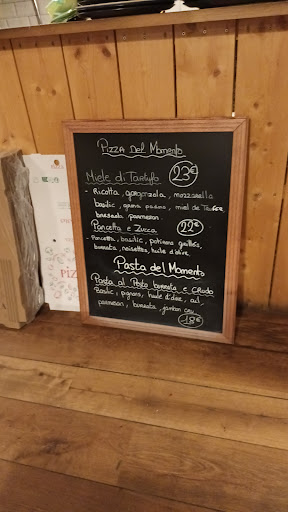 Pizza del Momento
Miele di Tartufo 23€
- Ricotta, gorgonzola, mozzarella
basilic, grana padano, miel de Truffe
bresaola, parmesan.
Pancetta e Zucca 22€
- Pancetta, basilic, potimarron grillés,
burrata, noisettes, huile d'olive.
Pasta del Momento
Pasta al Pesto burrata e CRudo
Basilic, pignons, huile d'olive, ail,
parmesan, burrata, jambon cru
18€